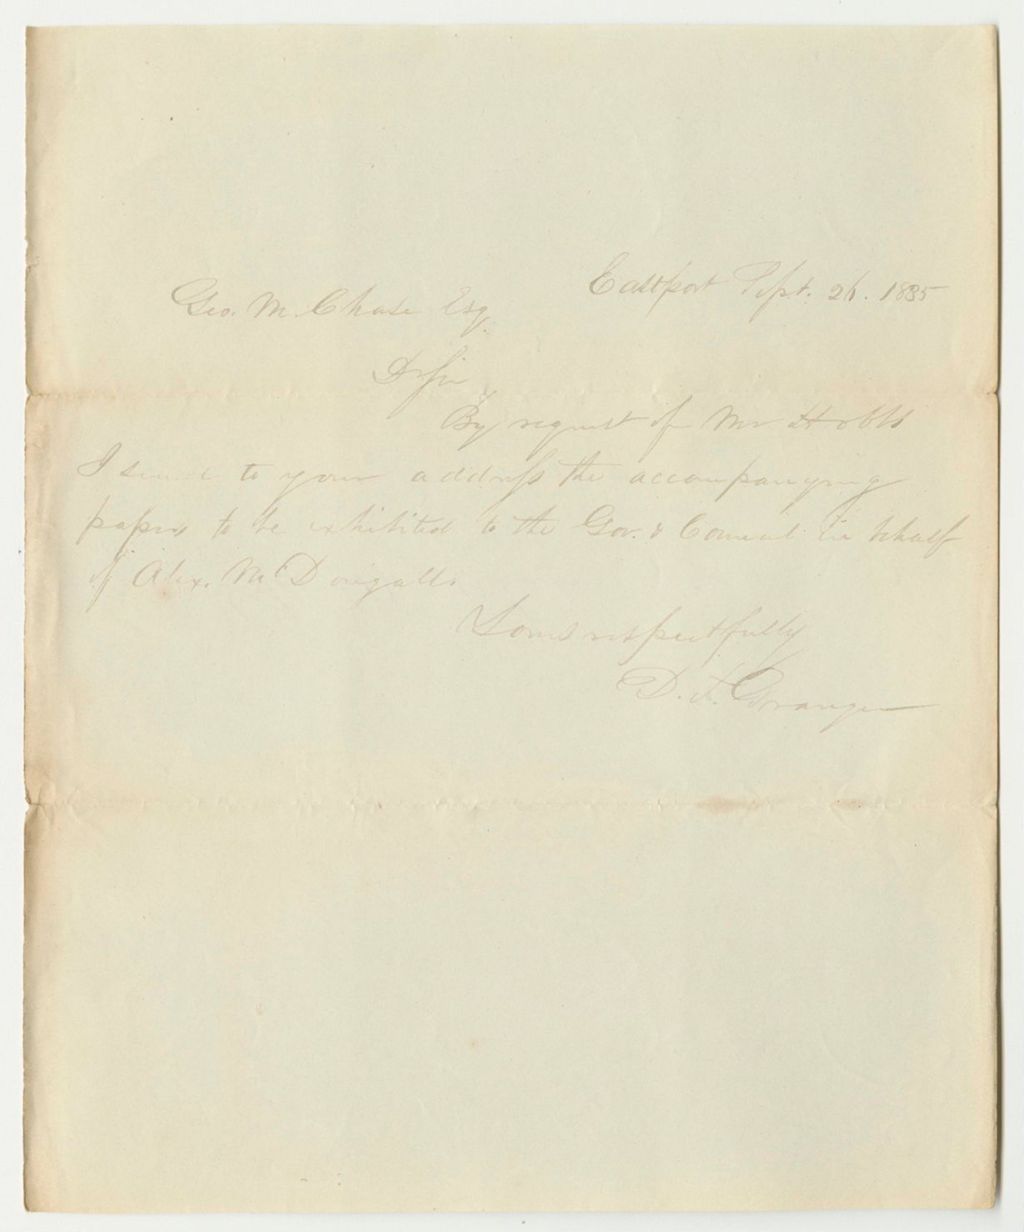 Eastport Sept. 26. 1835
Geo. M. Chase Esq.
Dr Sir
By request of Mr Hobbs
I send to your address the accompanying
papers to be exhibited to the Gov. & Council in behalf
of Alex. McDougall.
Yours respectfully
D. T. Granger